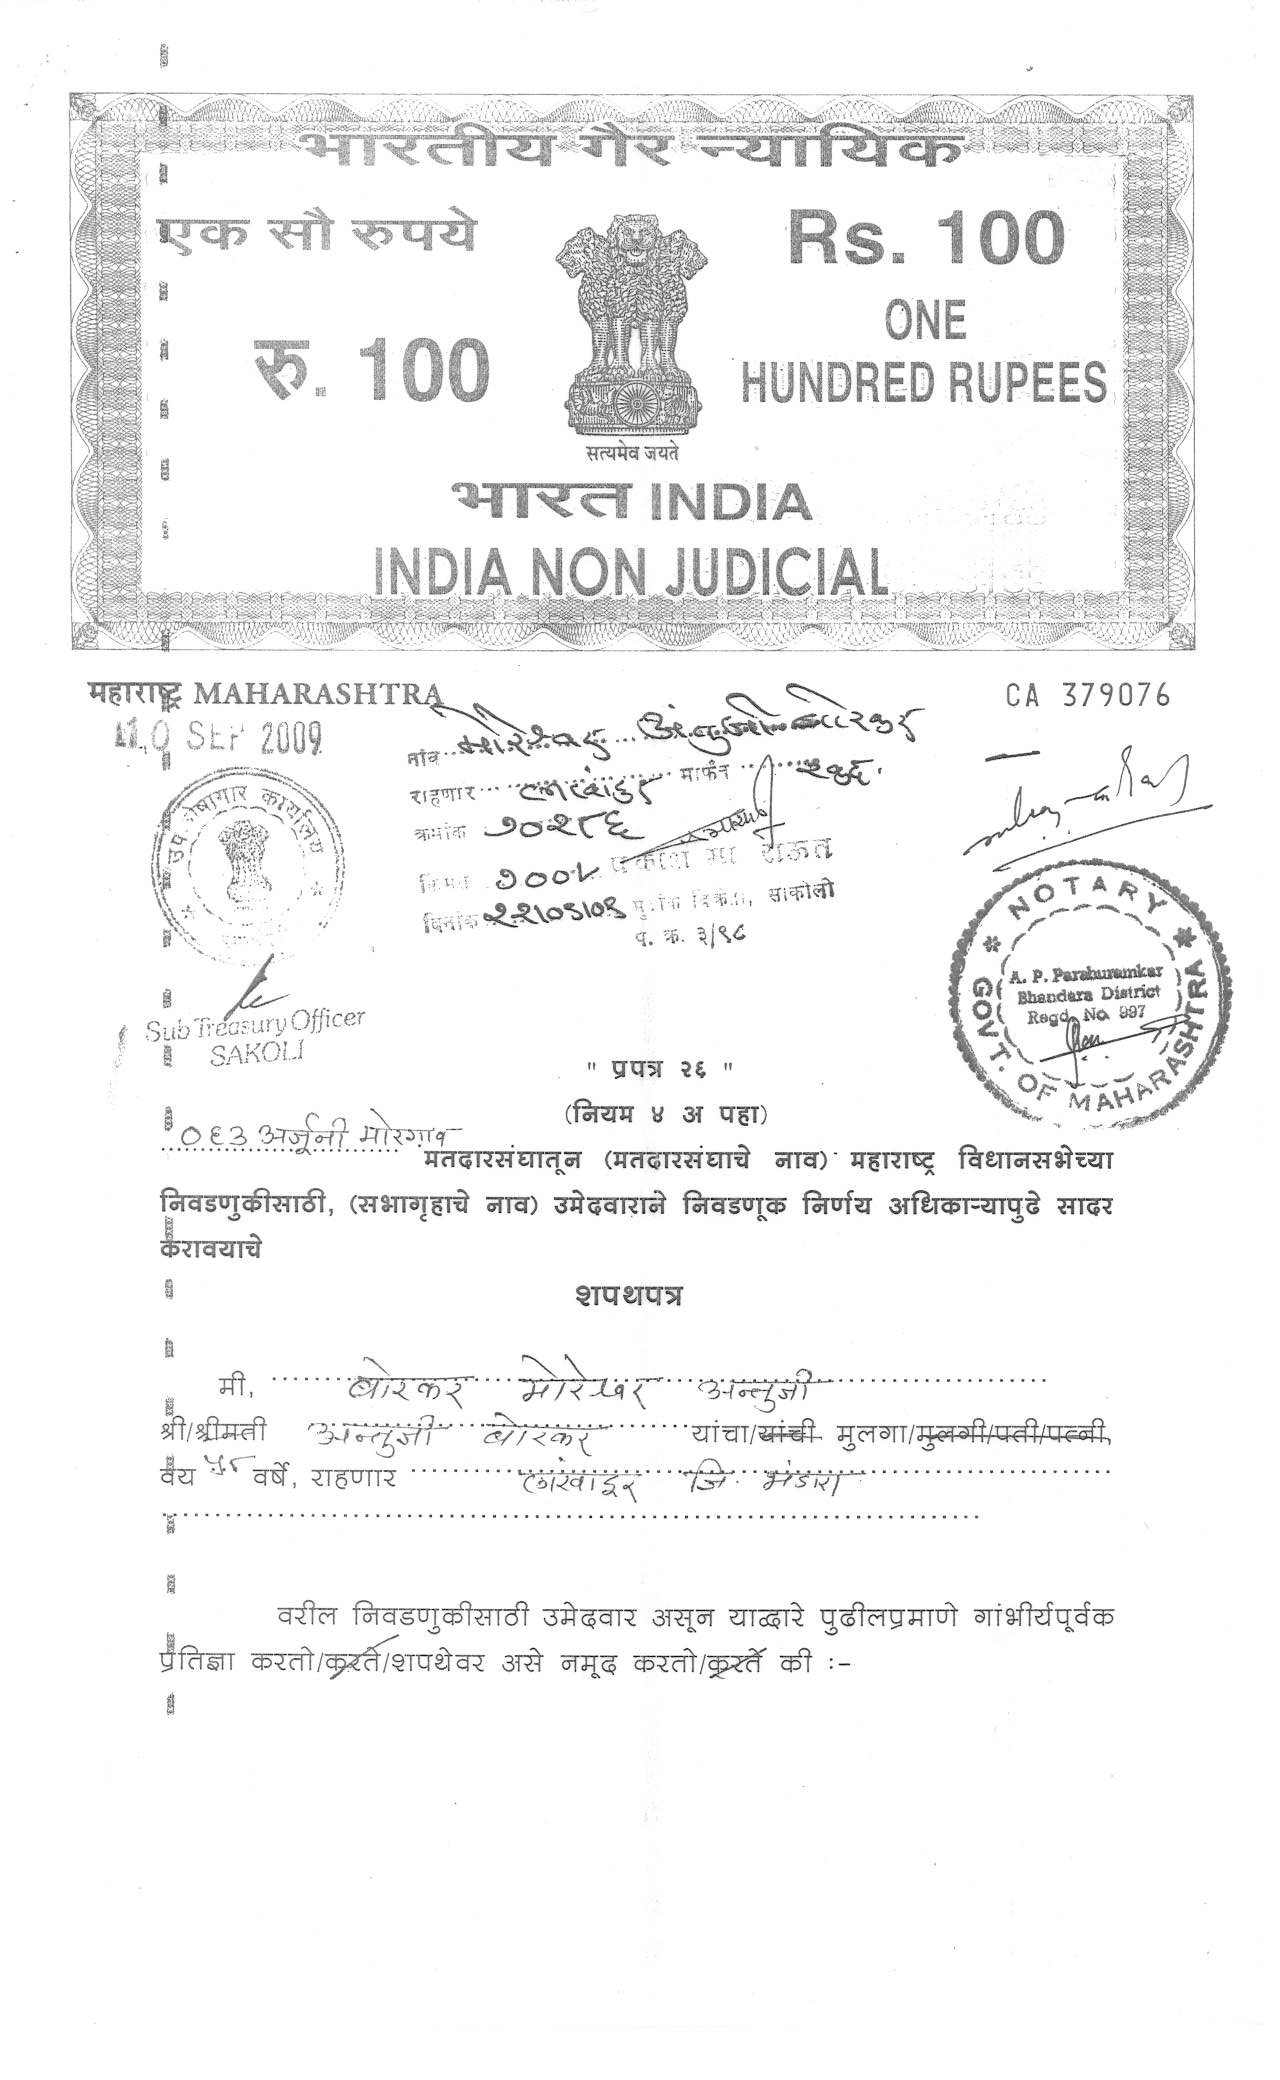 भारतीय गैर न्यायिक
एक सौ रुपये
Rs. 100
रु. 100
ONE
HUNDRED RUPEES
सत्यमेव जयते
भारत INDIA
INDIA NON JUDICIAL
महाराष्ट्र MAHARASHTRA
CA 379076
10 SEP 2009
नांव
राहणार मार्फत
क्रमांक
किंमत
दिनांक मुद्रांक विक्रेता, साकोली
प. क्र. ३/९८
उप कोषागार कार्यालय
Sub Treasury Officer
SAKOLI
NOTARY
GOVT. OF MAHARASHTRA
A. P. Parshuramkar
Bhandara District
Regd. No. 997
" प्रपत्र २६ "
(नियम ४ अ पहा)
०६३ अर्जूनी मोरगाव मतदारसंघातून (मतदारसंघाचे नाव) महाराष्ट्र विधानसभेच्या
निवडणुकीसाठी, (सभागृहाचे नाव) उमेदवाराने निवडणूक निर्णय अधिकाऱ्यापुढे सादर
करावयाचे
शपथपत्र
मी, बोरकर मोरेश्वर अन्तुजी
श्री/श्रीमती अन्तुजी बोरकर यांचा/यांची मुलगा/मुलगी/पती/पत्नी,
वय वर्षे, राहणार लाखांदूर जि. भंडारा
वरील निवडणुकीसाठी उमेदवार असून याद्वारे पुढीलप्रमाणे गांभीर्यपूर्वक
प्रतिज्ञा करतो/करते/शपथेवर असे नमूद करतो/करते की :-